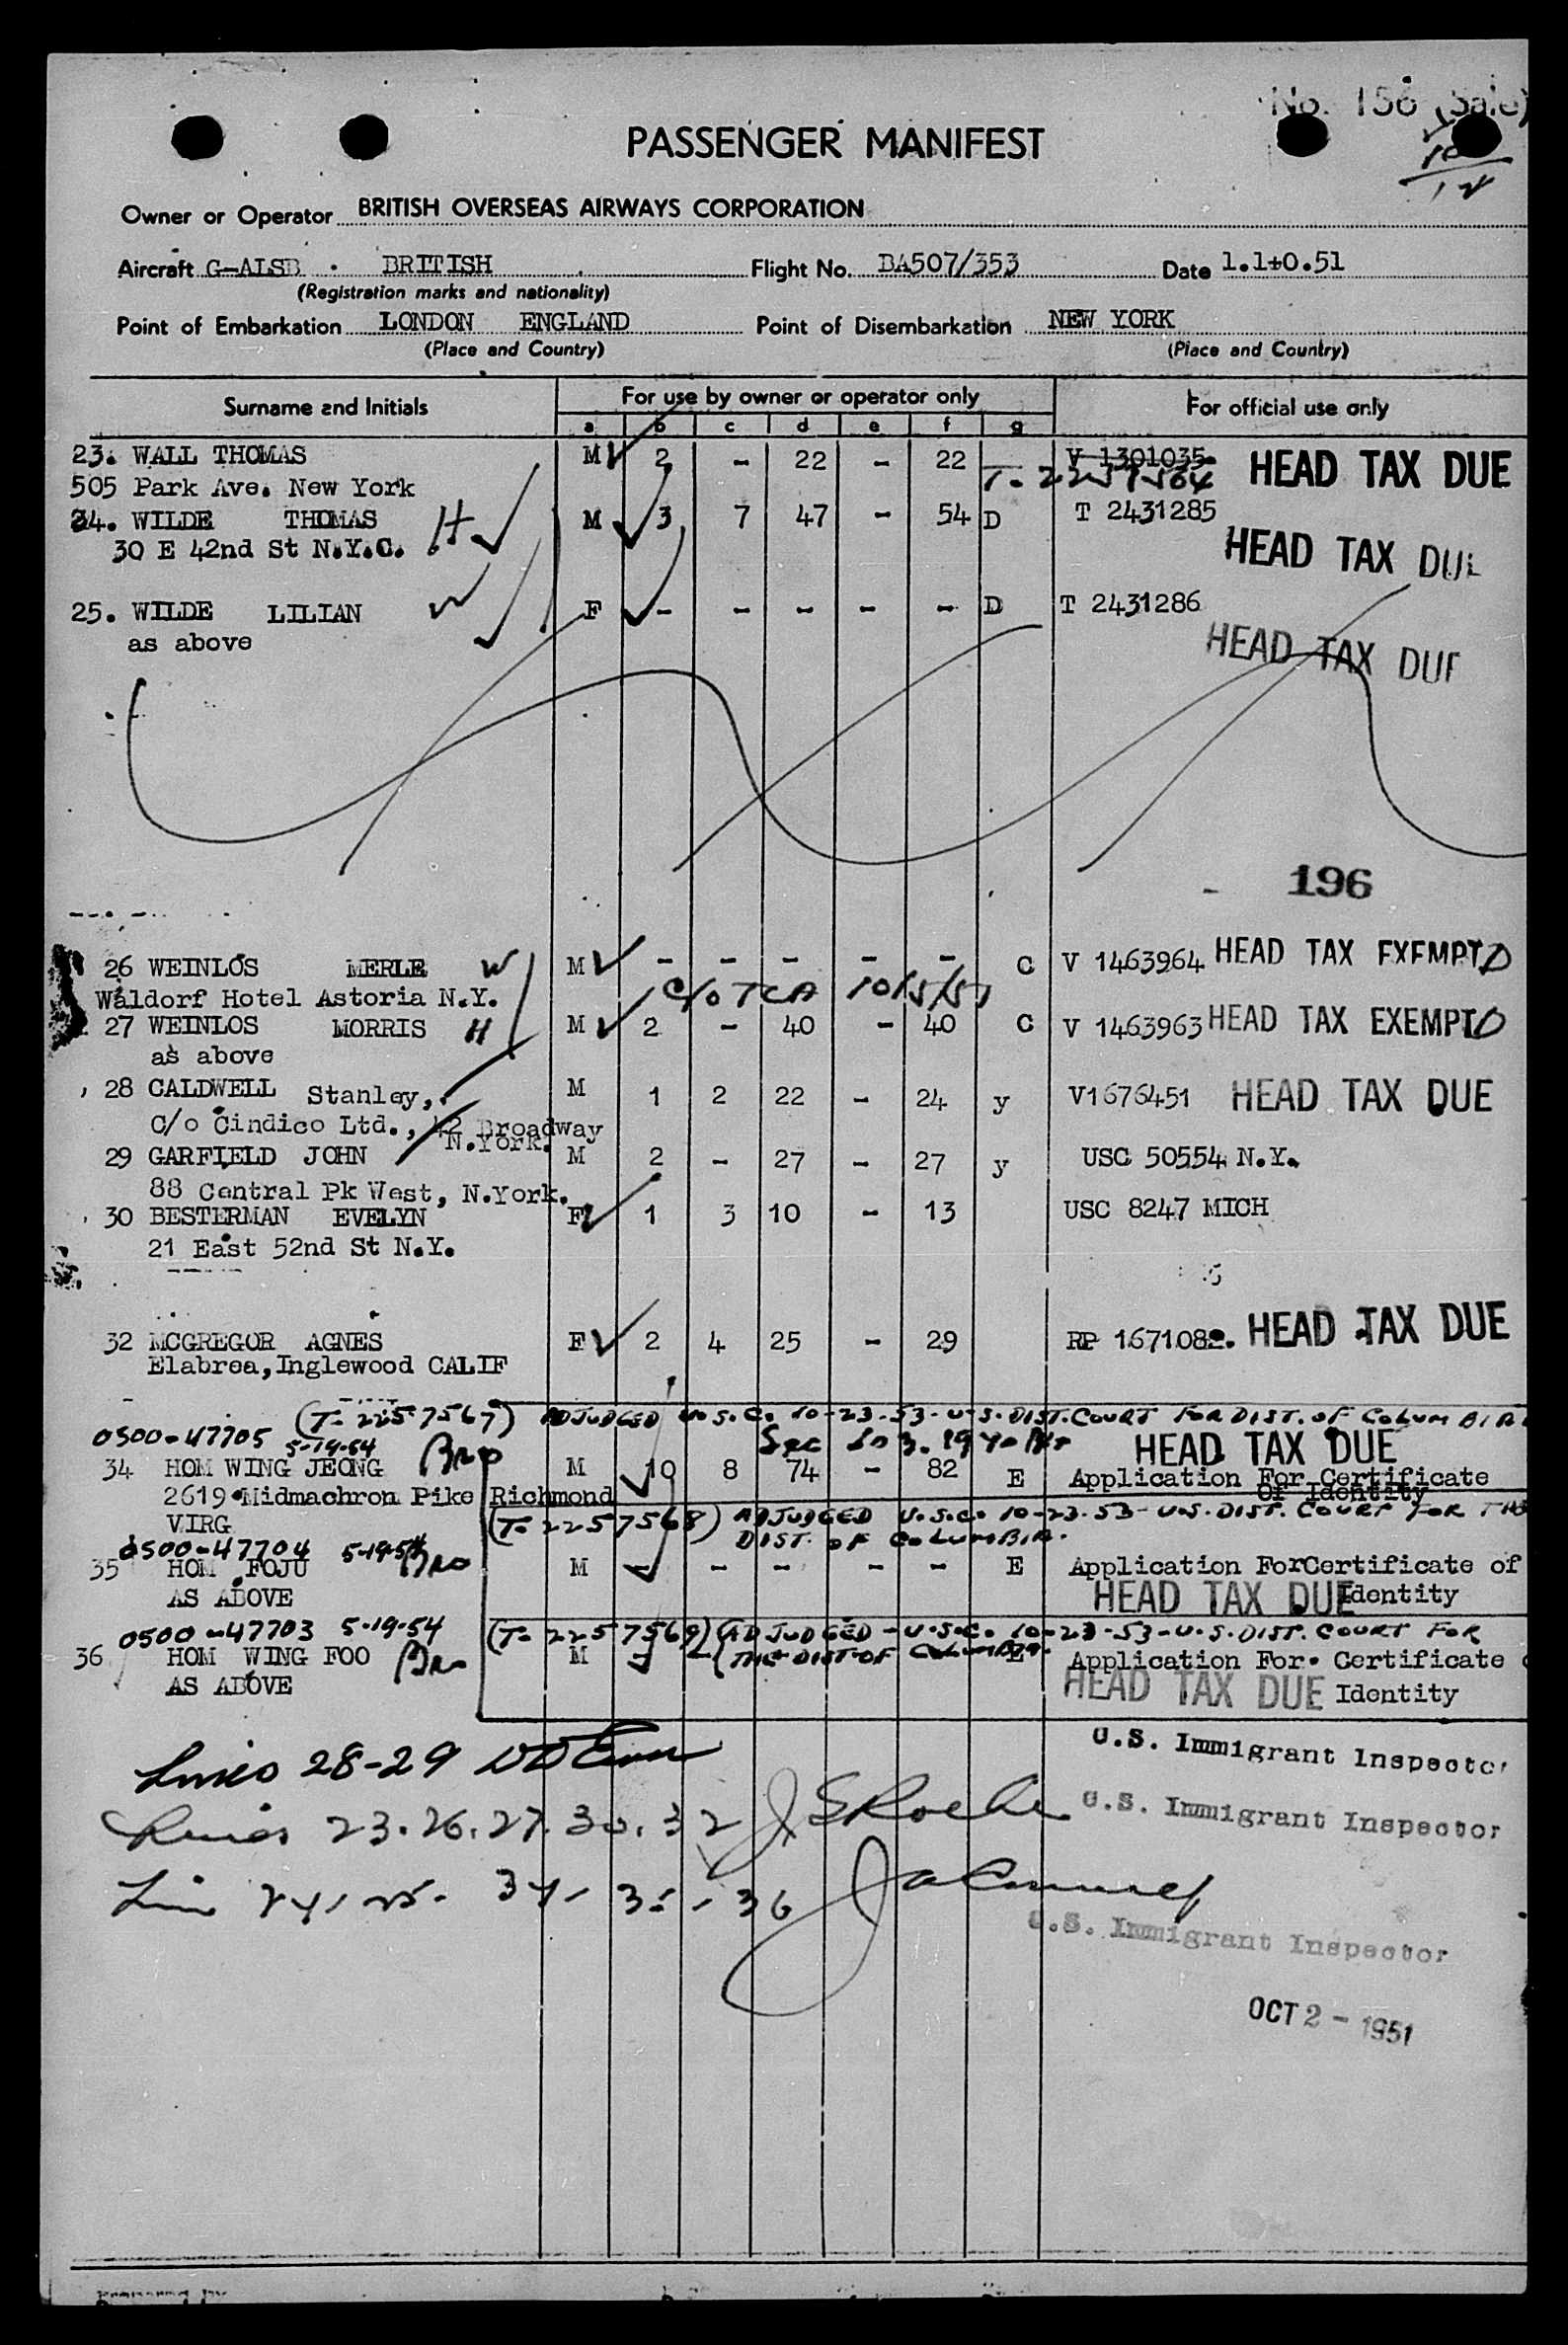 No. 156 (Sale)
10
12
PASSENGER MANIFEST
Owner or Operator BRITISH OVERSEAS AIRWAYS CORPORATION
Aircraft G-ALSB · BRITISH Flight No. BA507/353 Date 1.10.51
(Registration marks and nationality)
Point of Embarkation LONDON ENGLAND Point of Disembarkation NEW YORK
(Place and Country) (Place and Country)
Surname and Initials For use by owner or operator only For official use only
a b c d e f g
23. WALL THOMAS M 2 - 22 - 22 V 1301035 HEAD TAX DUE
505 Park Ave. New York T-2257564
24. WILDE THOMAS H M 3 7 47 - 54 D T 2431285
30 E 42nd St N.Y.C. HEAD TAX DUE
25. WILDE LILIAN W F - - - - - D T 2431286
as above HEAD TAX DUE
196
26 WEINLOS MERLE W M - - - - - C V 1463964 HEAD TAX EXEMPT D
Waldorf Hotel Astoria N.Y. C/o TCA 10/5/51
27 WEINLOS MORRIS H M 2 - 40 - 40 C V 1463963 HEAD TAX EXEMPT D
as above
28 CALDWELL Stanley, M 1 2 22 - 24 y V1676451 HEAD TAX DUE
C/o Cindico Ltd., 42 Broadway
N.York.
29 GARFIELD JOHN M 2 - 27 - 27 y USC 50554 N.Y.
88 Central Pk West, N.York.
30 BESTERMAN EVELYN F 1 3 10 - 13 USC 8247 MICH
21 East 52nd St N.Y.
32 MCGREGOR AGNES F 2 4 25 - 29 RP 1671082. HEAD TAX DUE
Elabrea, Inglewood CALIF
(T-2257567) ADJUDGED U.S.C. 10-23-53-U.S. DIST. COURT FOR DIST. OF COLUMBIA
0500-47705 5-19-54 Sec 503. HEAD TAX DUE
34 HOM WING JEONG Bro M 10 8 74 - 82 E Application For Certificate
Of Identity
2619 Midmachron Pike Richmond
VIRG (T-2257568) ADJUDGED U.S.C. 10-23-53-U.S. DIST. COURT FOR THE
DIST. OF COLUMBIA.
0500-47704 5-19-54
35 HOM FOJU Bro M - - - - - E Application ForCertificate of
AS ABOVE HEAD TAX DUE Identity
0500-47703 5-19-54 (T-2257569) (ADJUDGED-U.S.C. 10-23-53-U.S. DIST. COURT FOR
THE DIST. OF COLUMBIA.
36 HOM WING FOO Bro M - - E Application For Certificate
AS ABOVE HEAD TAX DUE Identity
Lines 28-29 U.S. Immigrant Inspector
Lines 23.26.27.30.32 J S Roche U.S. Immigrant Inspector
Line 24, 25- 34-35-36
U.S. Immigrant Inspector
OCT 2 - 1951